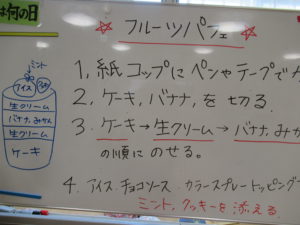 は何の日
☆フルーツパフェ☆
1, 紙コップにペンやテープで
2, ケーキ, バナナ, を切る.
3, ケーキ→生クリーム→バナナ, みか
の順にのせる。
4. アイス. チョコソース. カラースプレートッピング
ミント, クッキーを添える
ミント
アイス
生クリーム
バナナ, みかん
生クリーム
ケーキ